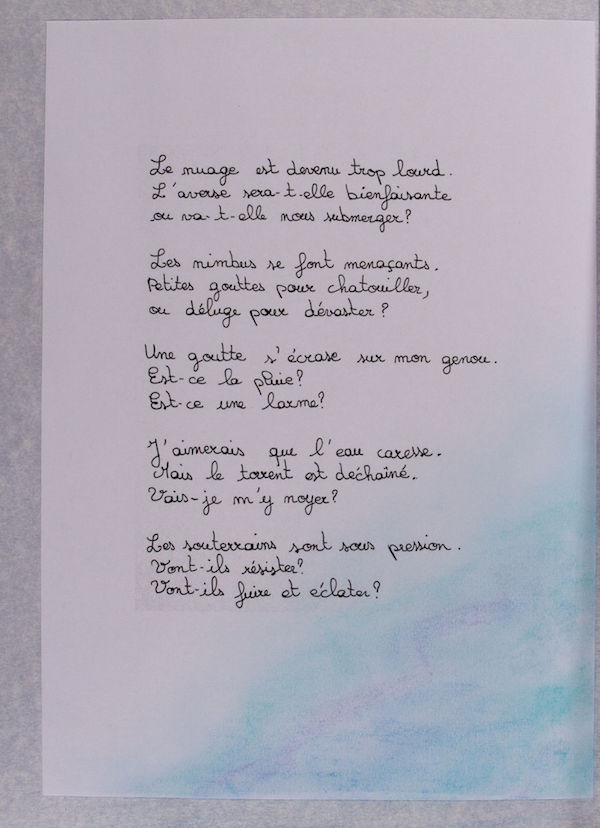 Le nuage est devenu trop lourd.
L'averse sera-t-elle bienfaisante
ou va-t-elle nous submerger?
Les nimbus se font menaçants.
Petites gouttes pour chatouiller,
ou déluge pour dévaster?
Une goutte s'écrase sur mon genou.
Est-ce la pluie?
Est-ce une larme?
J'aimerais que l'eau caresse.
Mais le torrent est déchaîné.
Vais-je m'y noyer?
Les souterrains sont sous pression.
Vont-ils résister?
Vont-ils fuire et éclater?